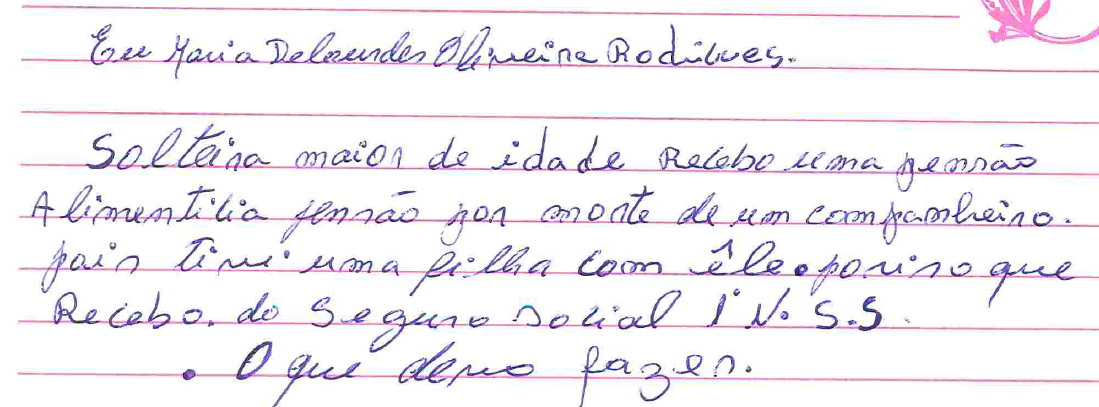 Eu Maria Delourdes Oliveira Rodrigues.
Solteira maior de idade Recebo uma pensão
Alimentilia pensão por morte de um companheiro.
pois tive uma filha com êle. porisso que
Recebo. do Seguro Social I N. S.S.
. O que devo fazer.